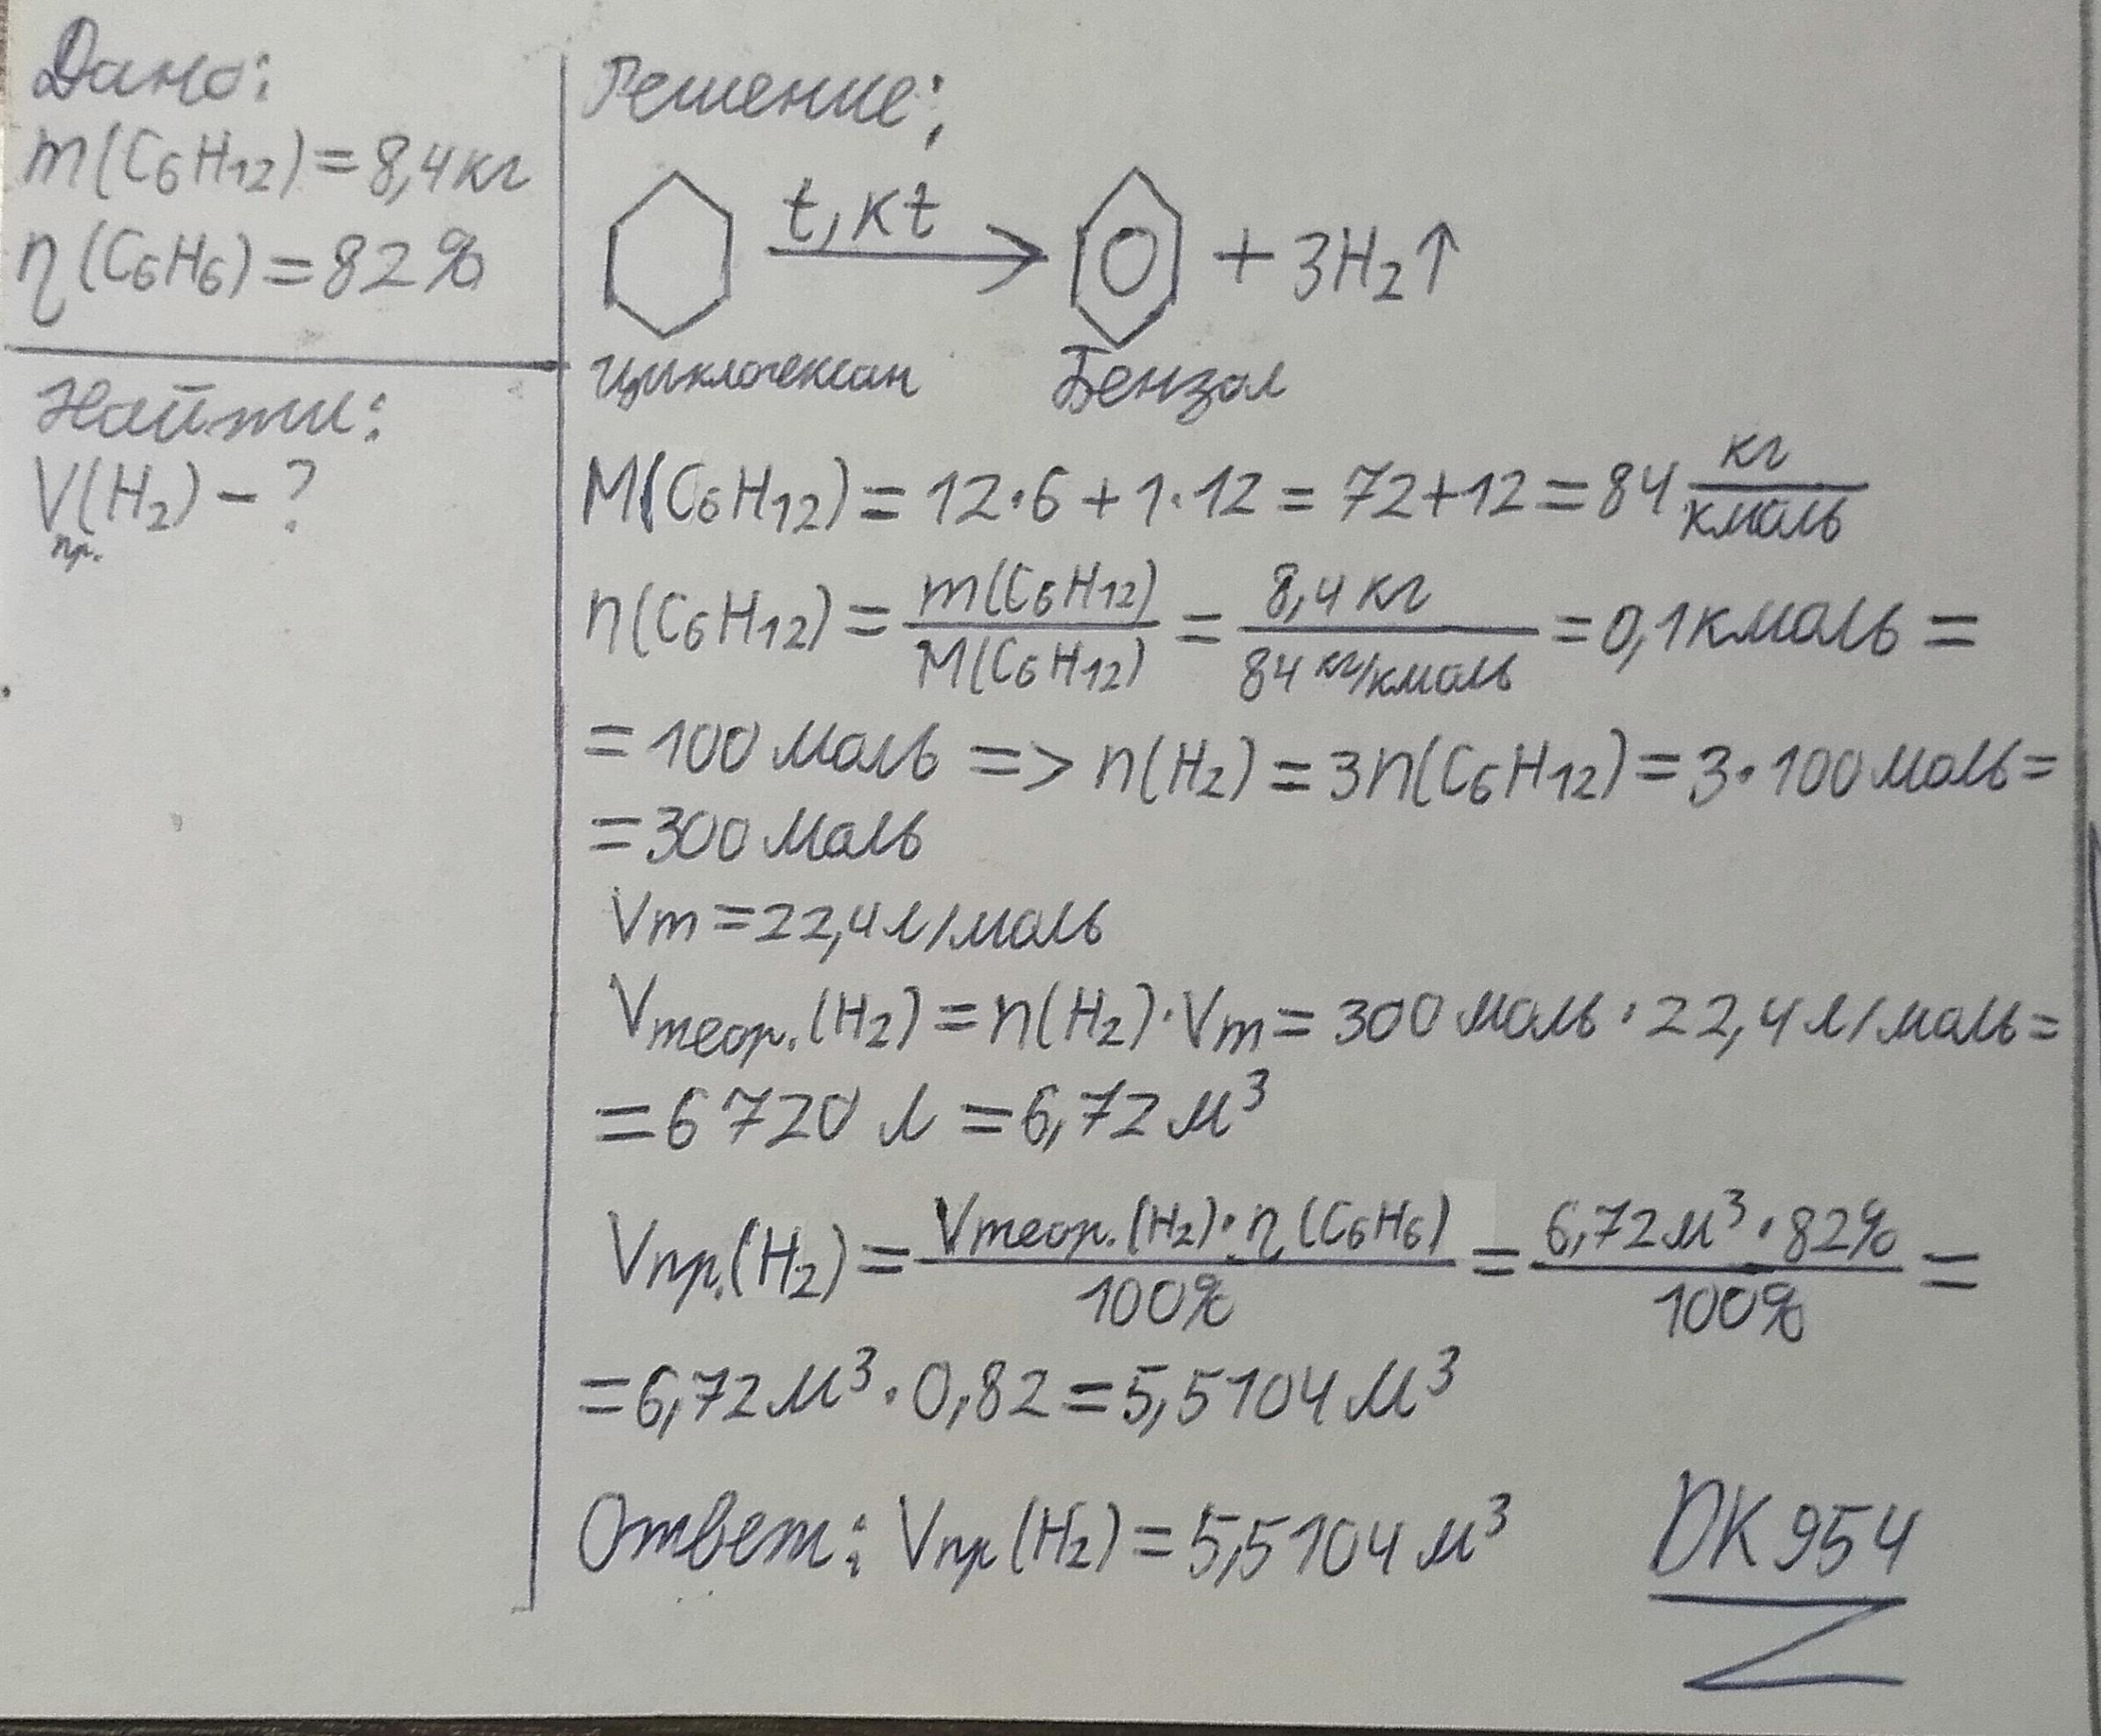 Дано:
m(C₆H₁₂) = 8,4 кг
η(C₆H₆) = 82 %
Найти:
Vпр.(H₂) – ?
Решение:
t, kt
+ 3H₂↑
Циклогексан Бензол
M(C₆H₁₂) = 12·6 + 1·12 = 72+12 = 84 кг/кмоль
n(C₆H₁₂) = m(C₆H₁₂)/M(C₆H₁₂) = 8,4 кг/84 кг/кмоль = 0,1 кмоль =
= 100 моль => n(H₂) = 3n(C₆H₁₂) = 3·100 моль =
= 300 моль
Vm = 22,4 л/моль
Vтеор.(H₂) = n(H₂)·Vm = 300 моль · 22,4 л/моль =
= 6720 л = 6,72 м³
Vпр.(H₂) = Vтеор.(H₂)·η(C₆H₆)/100% = 6,72 м³·82%/100% =
= 6,72 м³·0,82 = 5,5104 м³
Ответ: Vпр(H₂) = 5,5104 м³
DK954